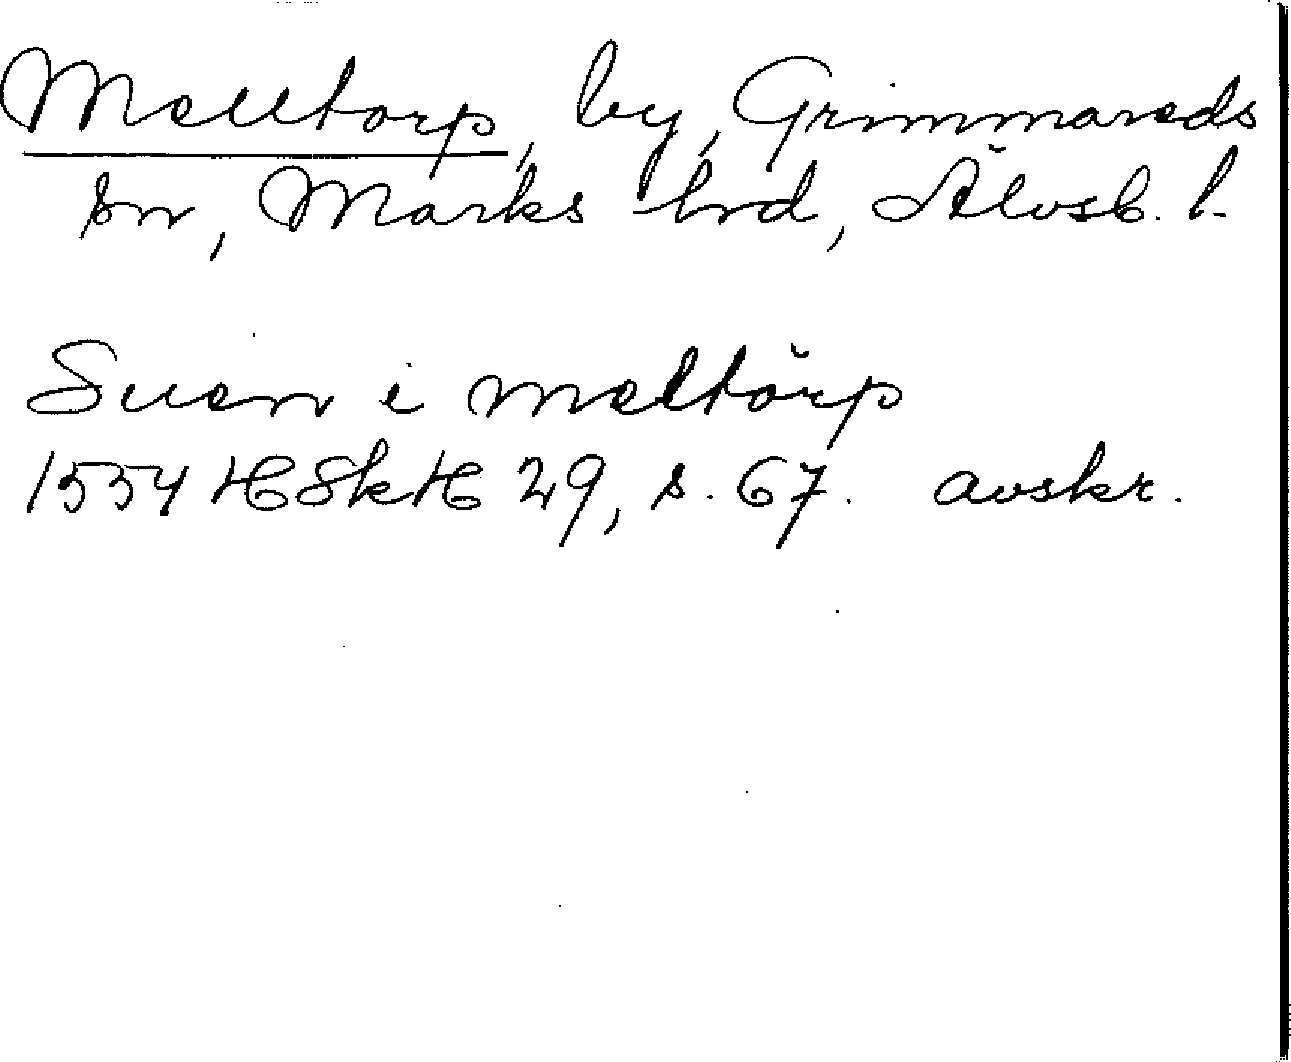 Melltorp, by, Grimmareds
sn, Marks hrd, Älvsb. l.
Suen i meltörp
1554 HSkH 29, s. 67. avskr.